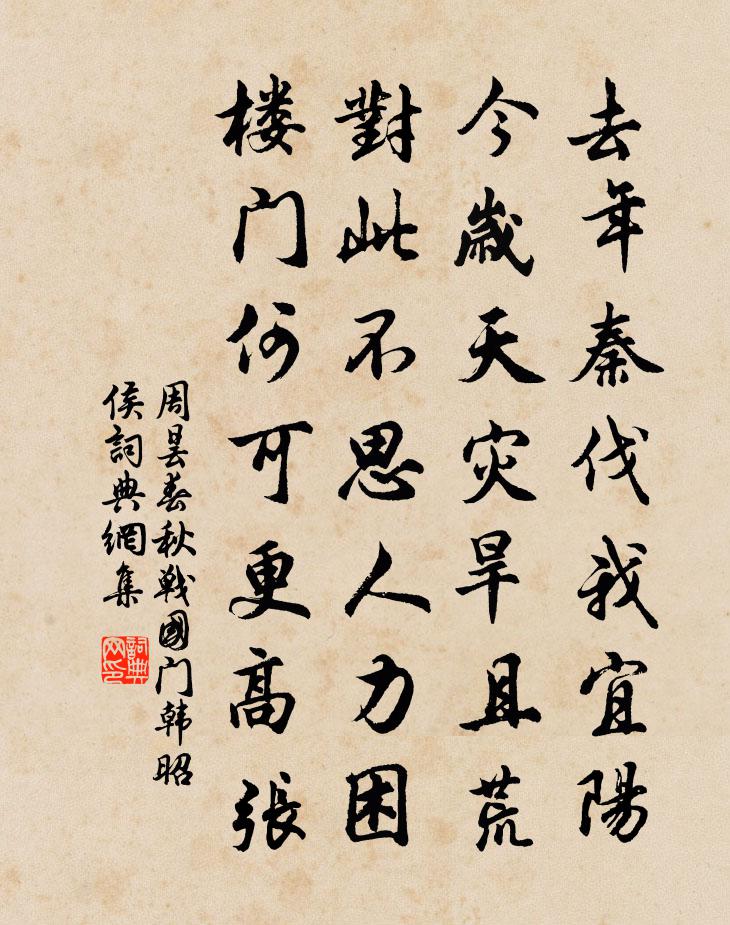 去年秦伐我宜陽
今歲天灾旱且荒
對此不思人力困
楼门何可更高張
周昙春秋戦國门韩昭
侯詞典網集
詞典网印